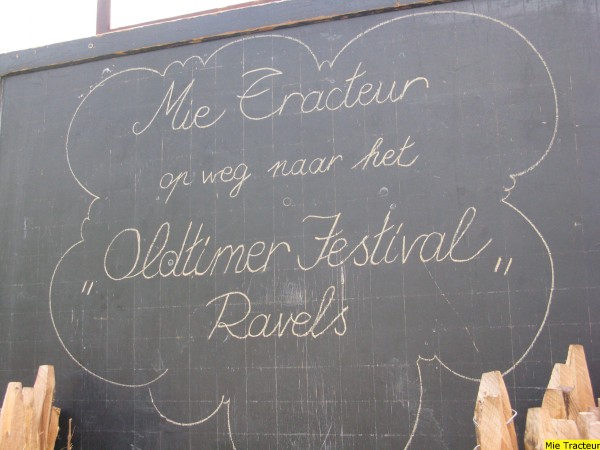 Mie Tracteur
op weg naar het
„Oldtimer Festival"
Ravels
Mie Tracteur